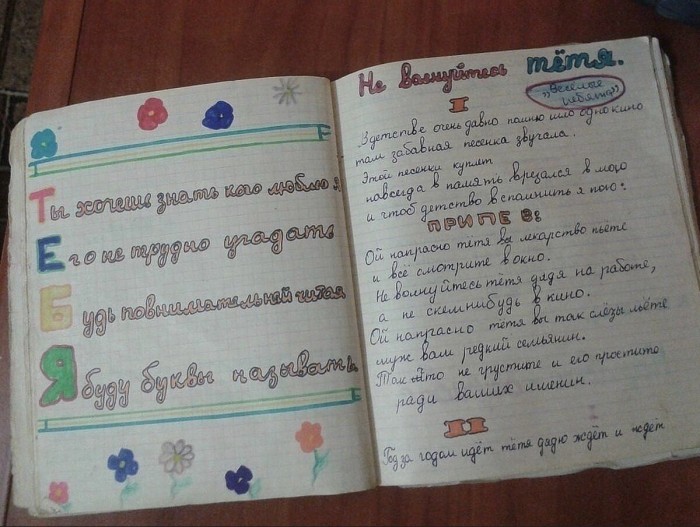 Ты хочешь знать кого люблю я
Его не трудно угадать
Будь повнимательней читая
Я буду буквы называть
Не волнуйтесь тётя.
„Весёлые ребята"
I
В детстве очень давно помню шло одно кино
там забавная песенка звучала.
Этой песенки куплет
навсегда в память врезался в мою
и чтоб детство вспомнить я пою:
ПРИПЕВ:
Ой напрасно тётя вы лекарство пьёте
и всё смотрите в окно.
Не волнуйтесь тётя дядя на работе,
а не с кемнибудь в кино.
Ой напрасно тётя вы так слёзы льёте
муж вам редкий семьянин.
Так что не грустите и его простите
ради ваших именин.
II
Год за годом идёт тётя дядю ждёт и ждёт